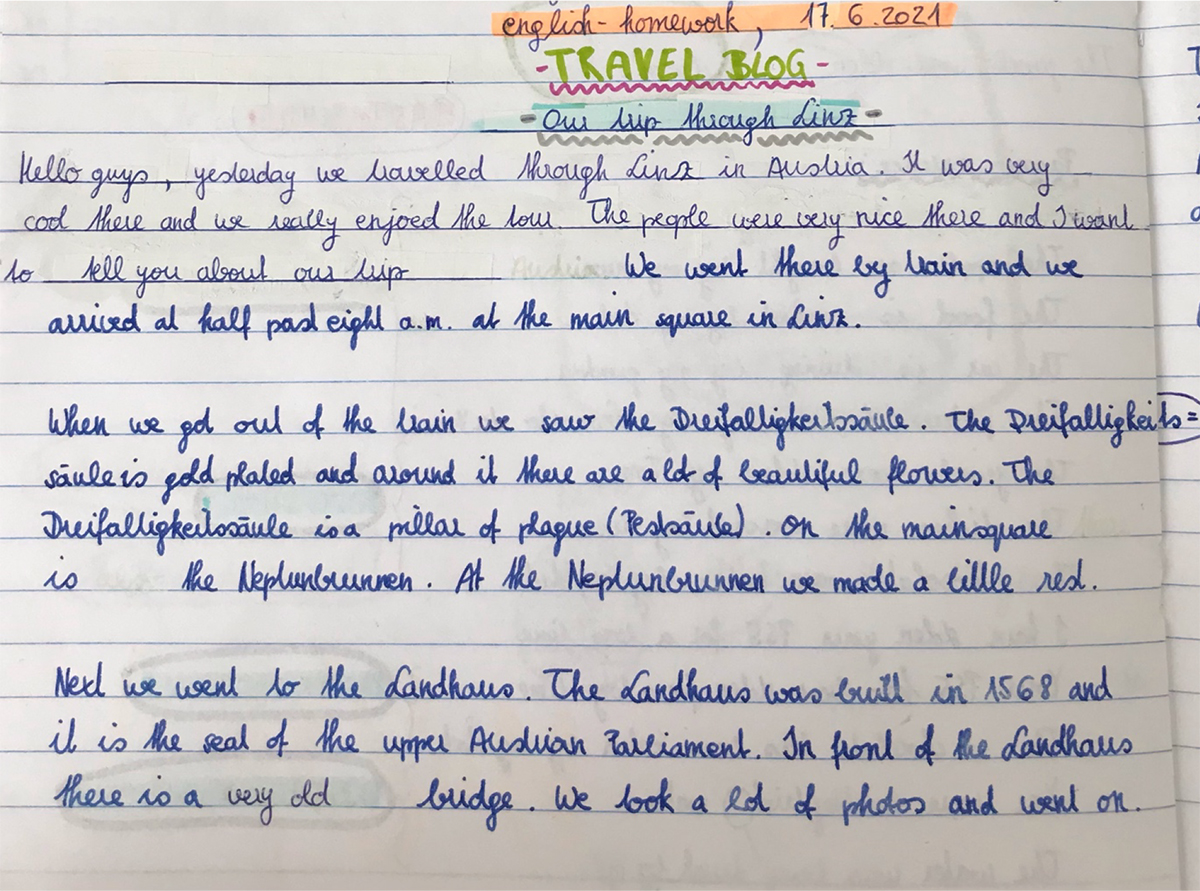 english-homework, 17.6.2021
-TRAVEL BLOG-
-Our trip through Linz-
Hello guys, yesterday we travelled through Linz in Austria. It was very
cool there and we really enjoed the tour. The people were very nice there and I want
to tell you about our trip We went there by train and we
arrived at half past eight a.m. at the main square in Linz.
When we got out of the train we saw the Dreifalligkeitssäule. The Dreifalligkeits=
säule is gold plated and around it there are a lot of beautiful flowers. The
Dreifalligkeitssäule is a pillar of plague (Pestsäule). On the mainsquare
is the Neptunbrunnen. At the Neptunbrunnen we made a little rest.
Next we went to the Landhaus. The Landhaus was built in 1568 and
it is the seat of the upper Austrian Parliament. In front of the Landhaus
there is a very old bridge. We took a lot of photos and went on.